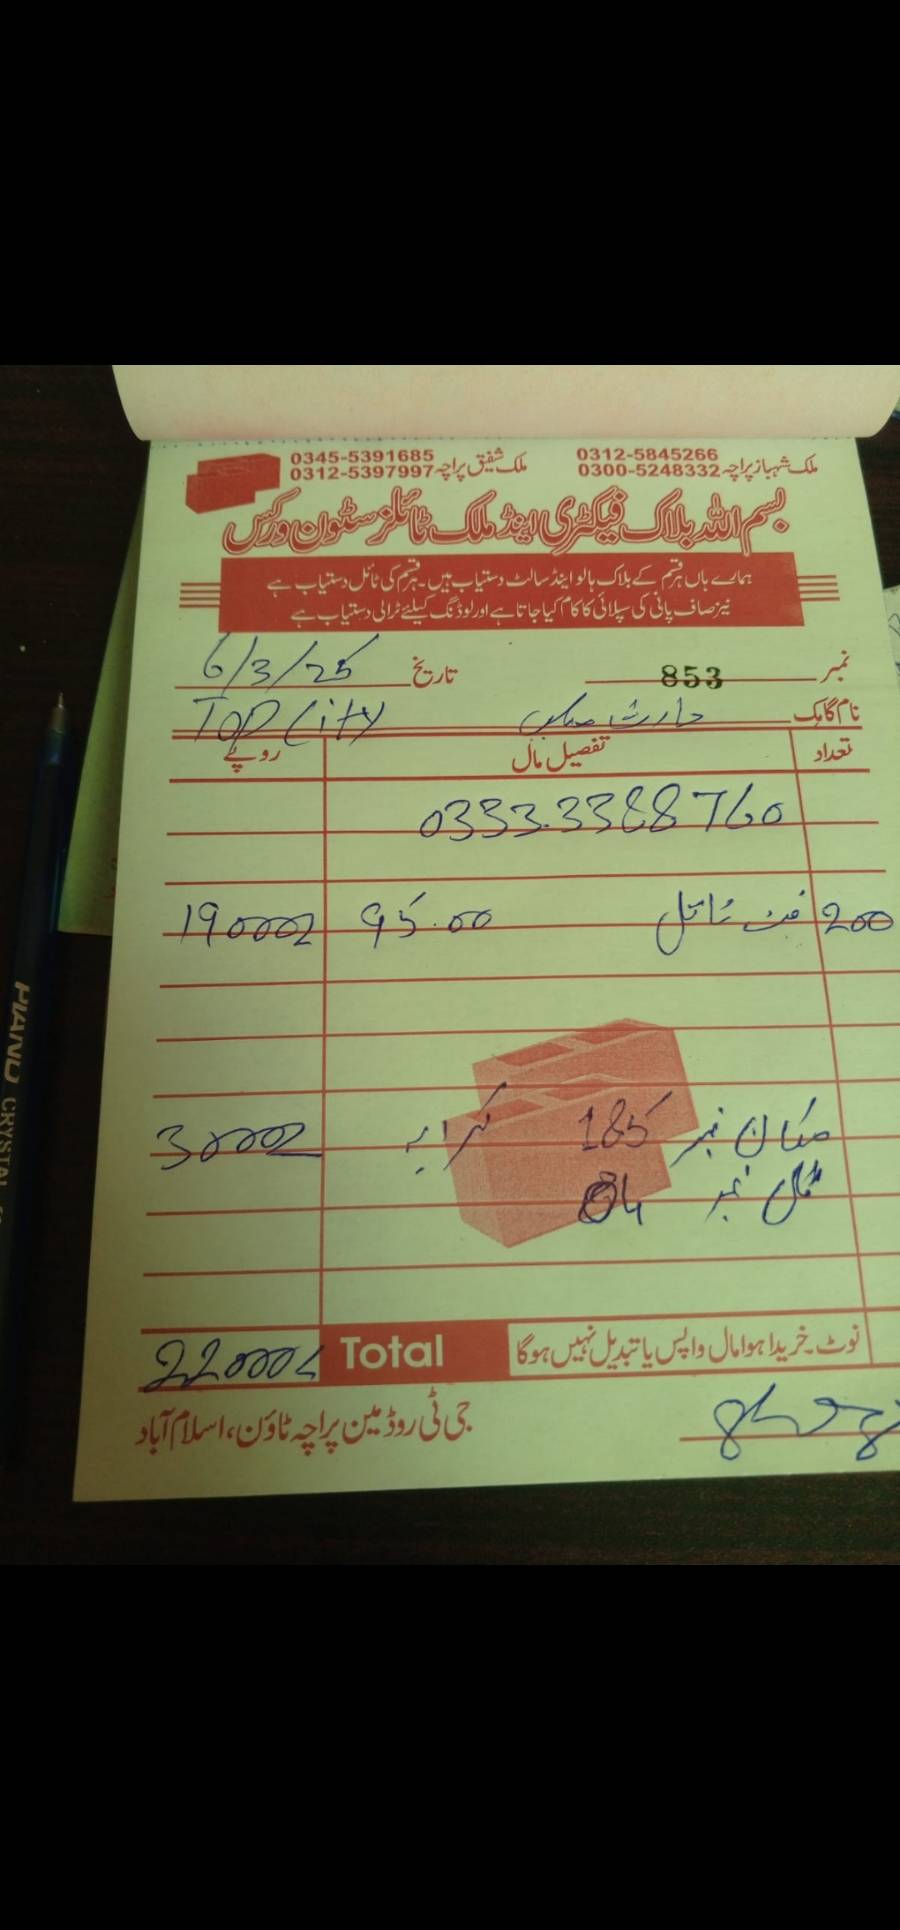 ملک شہباز پراچہ 0312-5845266 0300-5248332
ملک شفیق پراچہ 0345-5391685 0312-5397997
بسم اللہ بلاک فیکٹری اینڈ ملک ٹائلز سٹون ورکس
ہمارے ہاں ہر قسم کے بلاک ہالو اینڈ سالٹ دستیاب ہیں۔ ہر قسم کی ٹائل دستیاب ہے
نیز صاف پانی کی سپلائی کا کام کیا جاتا ہے اور لوڈنگ کیلئے ٹرالی دستیاب ہے
نمبر 853 تاریخ 6/3/25
نام گاہک حارث TOP City
تعداد تفصیل مال روپے
0333.3388760
200 فٹ ٹائل 95.00
مکان نمبر 185 کرایہ
نمبر 04
نوٹ۔ خریدا ہوا مال واپس یا تبدیل نہیں ہوگا Total
جی ٹی روڈ مین پراچہ ٹاؤن، اسلام آباد
PIANO CRYSTAL